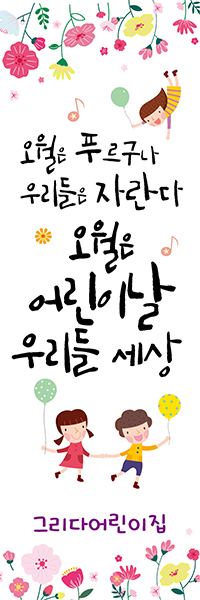 오월은 푸르구나
우리들은 자란다
오월은
어린이날
우리들 세상
그리다어린이집